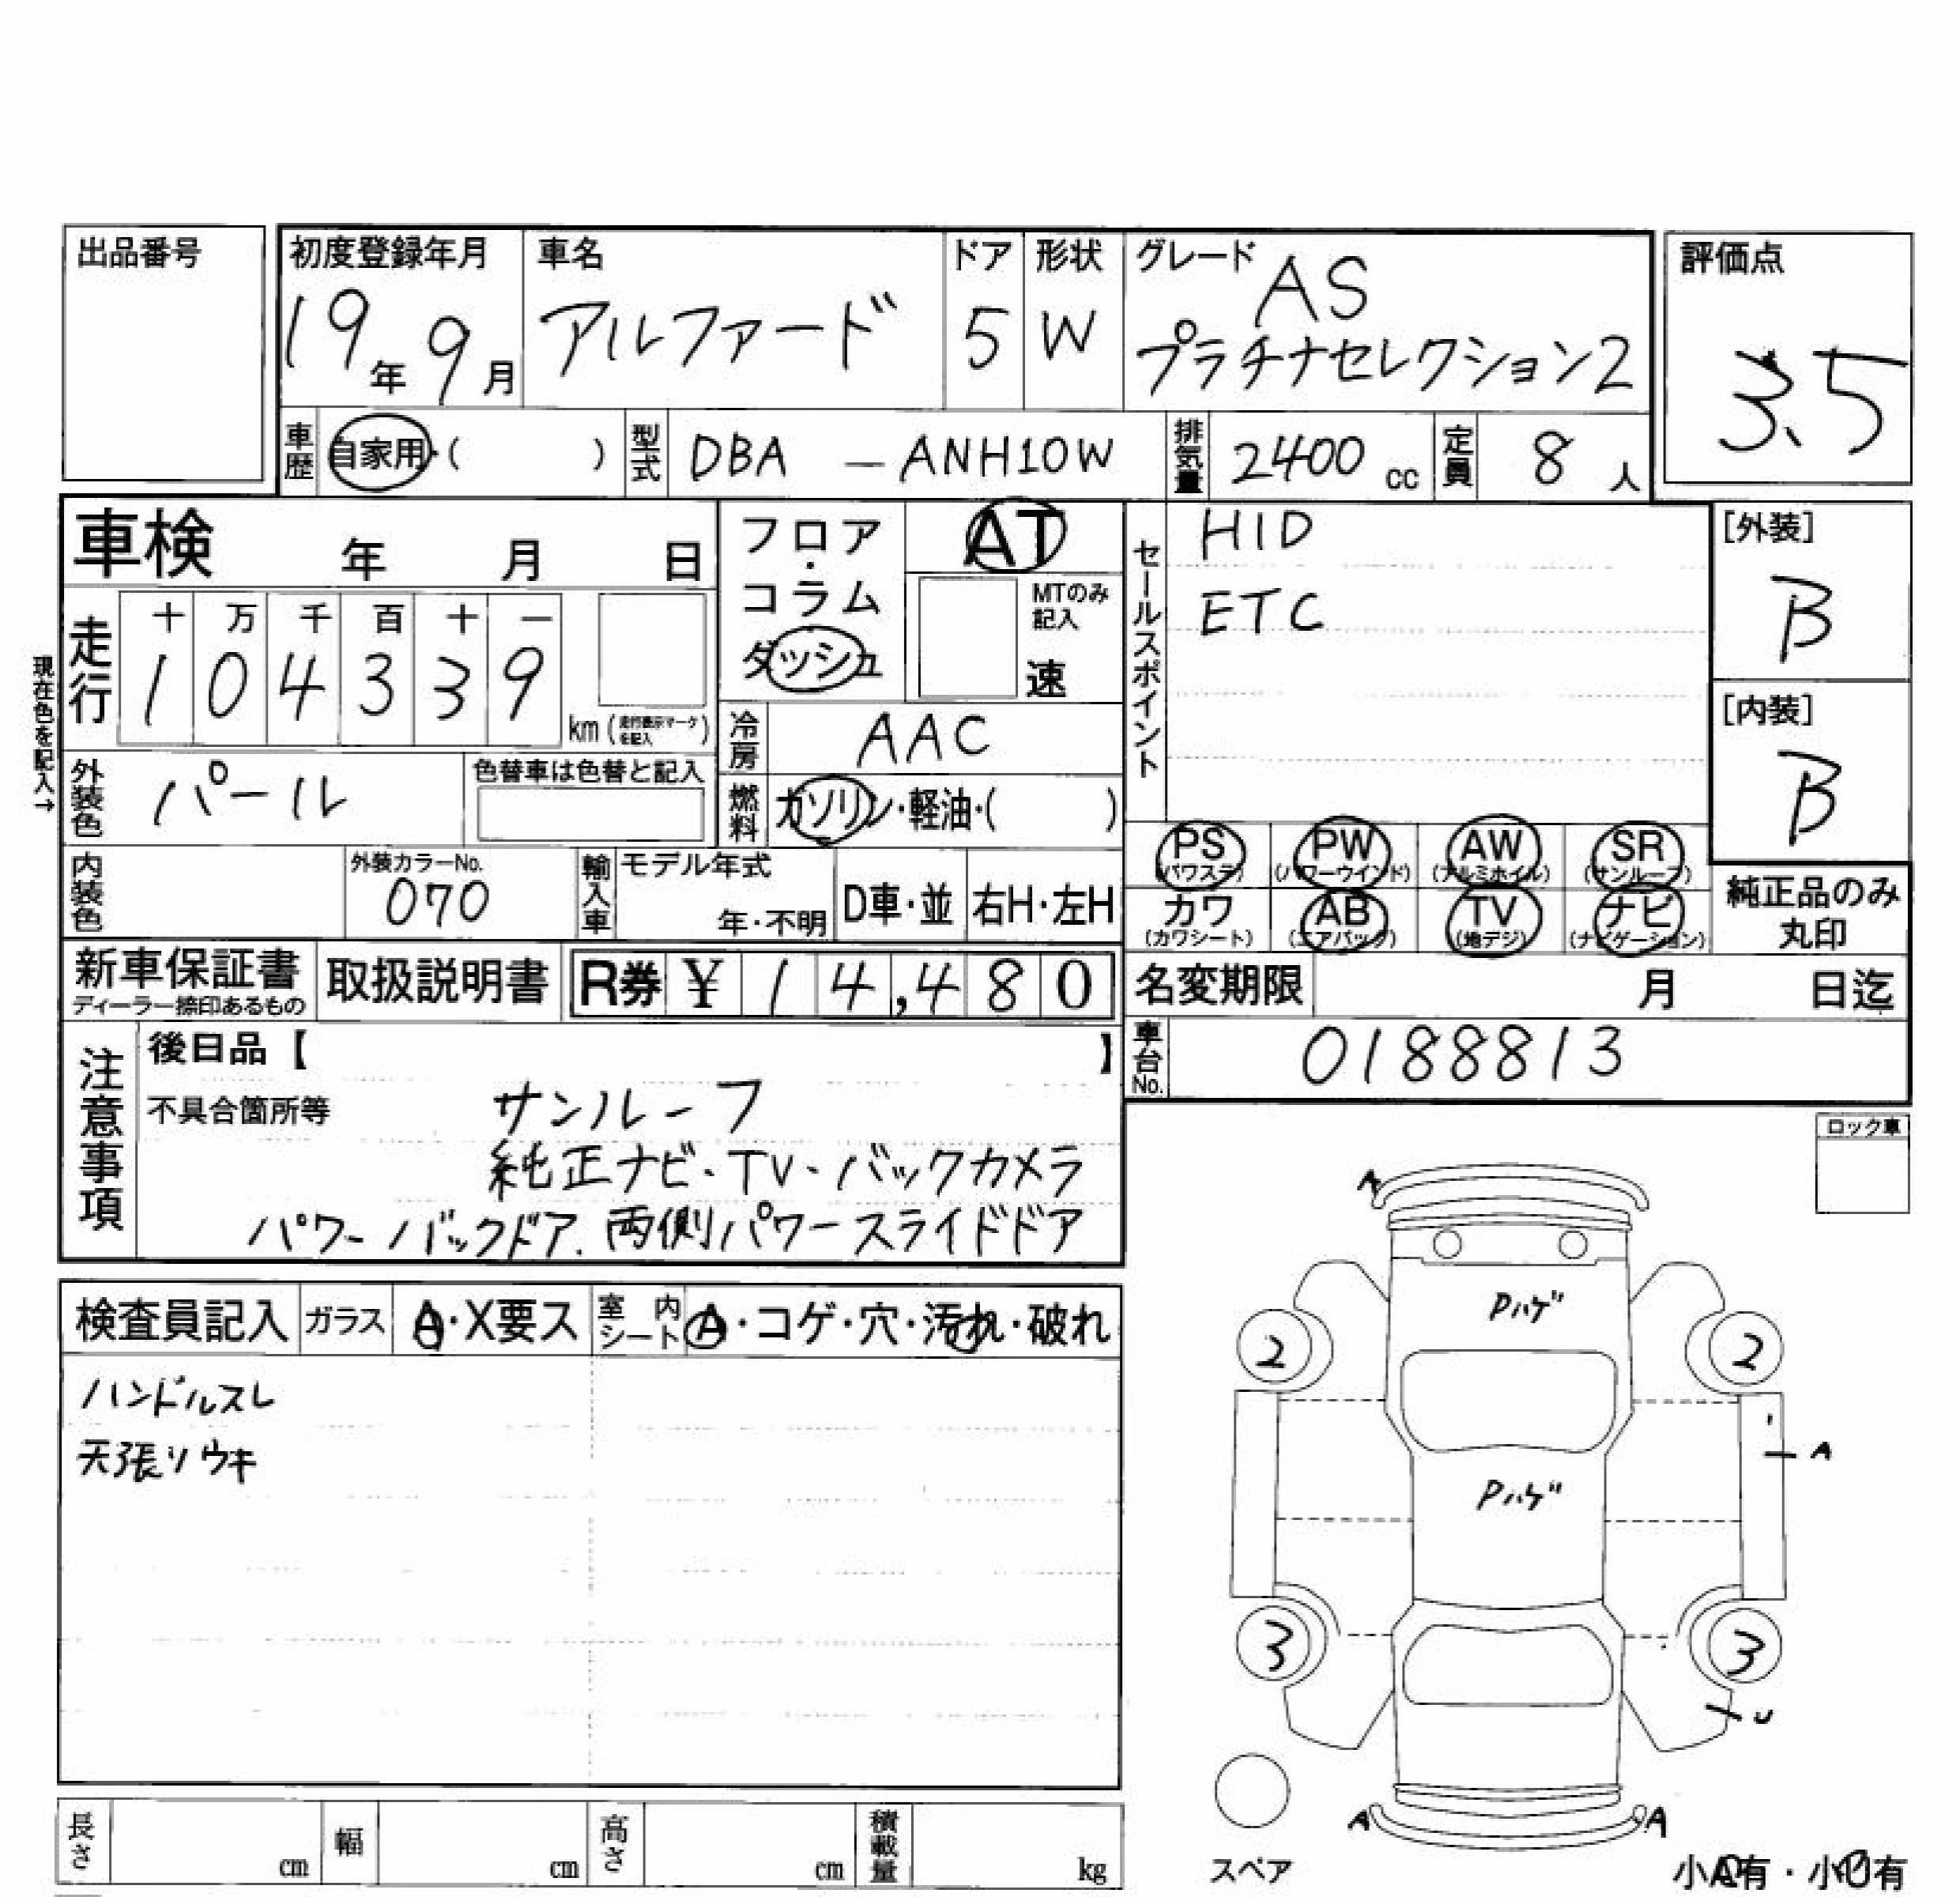 出品番号
初度登録年月 車名 ドア 形状 グレード 評価点
19年9月 アルファード 5 W AS
プラチナセレクション2
3.5
車歴 自家用・( ) 型式 DBA - ANH10W 排気量 2400cc 定員 8人
車検 年 月 日
フロア・コラム
ダッシュ
AT
MTのみ記入
速
セールスポイント
HID
ETC
[外装]
B
[内装]
B
現在色を記入→
走行
十 万 千 百 十 一
1 0 4 3 3 9
km(走行表示マークを記入)
冷房 AAC
外装色 パール 色替車は色替と記入
燃料 ガソリン・軽油・( )
PS(パワステ) PW(パワーウインド) AW(アルミホイル) SR(サンルーフ)
カワ(カワシート) AB(エアバッグ) TV(地デジ) ナビ(ナビゲーション)
純正品のみ
丸印
内装色 外装カラーNo.
070
輸入車 モデル年式
年・不明 D車・並 右H・左H
新車保証書 取扱説明書 R券 ¥ 1 4,4 8 0
ディーラー捺印あるもの
名変期限 月 日迄
車台No. 0188813
注意事項
後日品【 】
不具合箇所等 サンルーフ
純正ナビ・TV・バックカメラ
パワーバックドア.両側パワースライドドア
ロック車
検査員記入 ガラス A・X要ス 室内シート A・コゲ・穴・汚れ・破れ
ハンドルスレ
天張リウキ
A
Pハゲ
2 2
A
Pハゲ
3 3
U
A A
スペア
小A有・小U有
長さ cm 幅 cm 高さ cm 積載量 kg